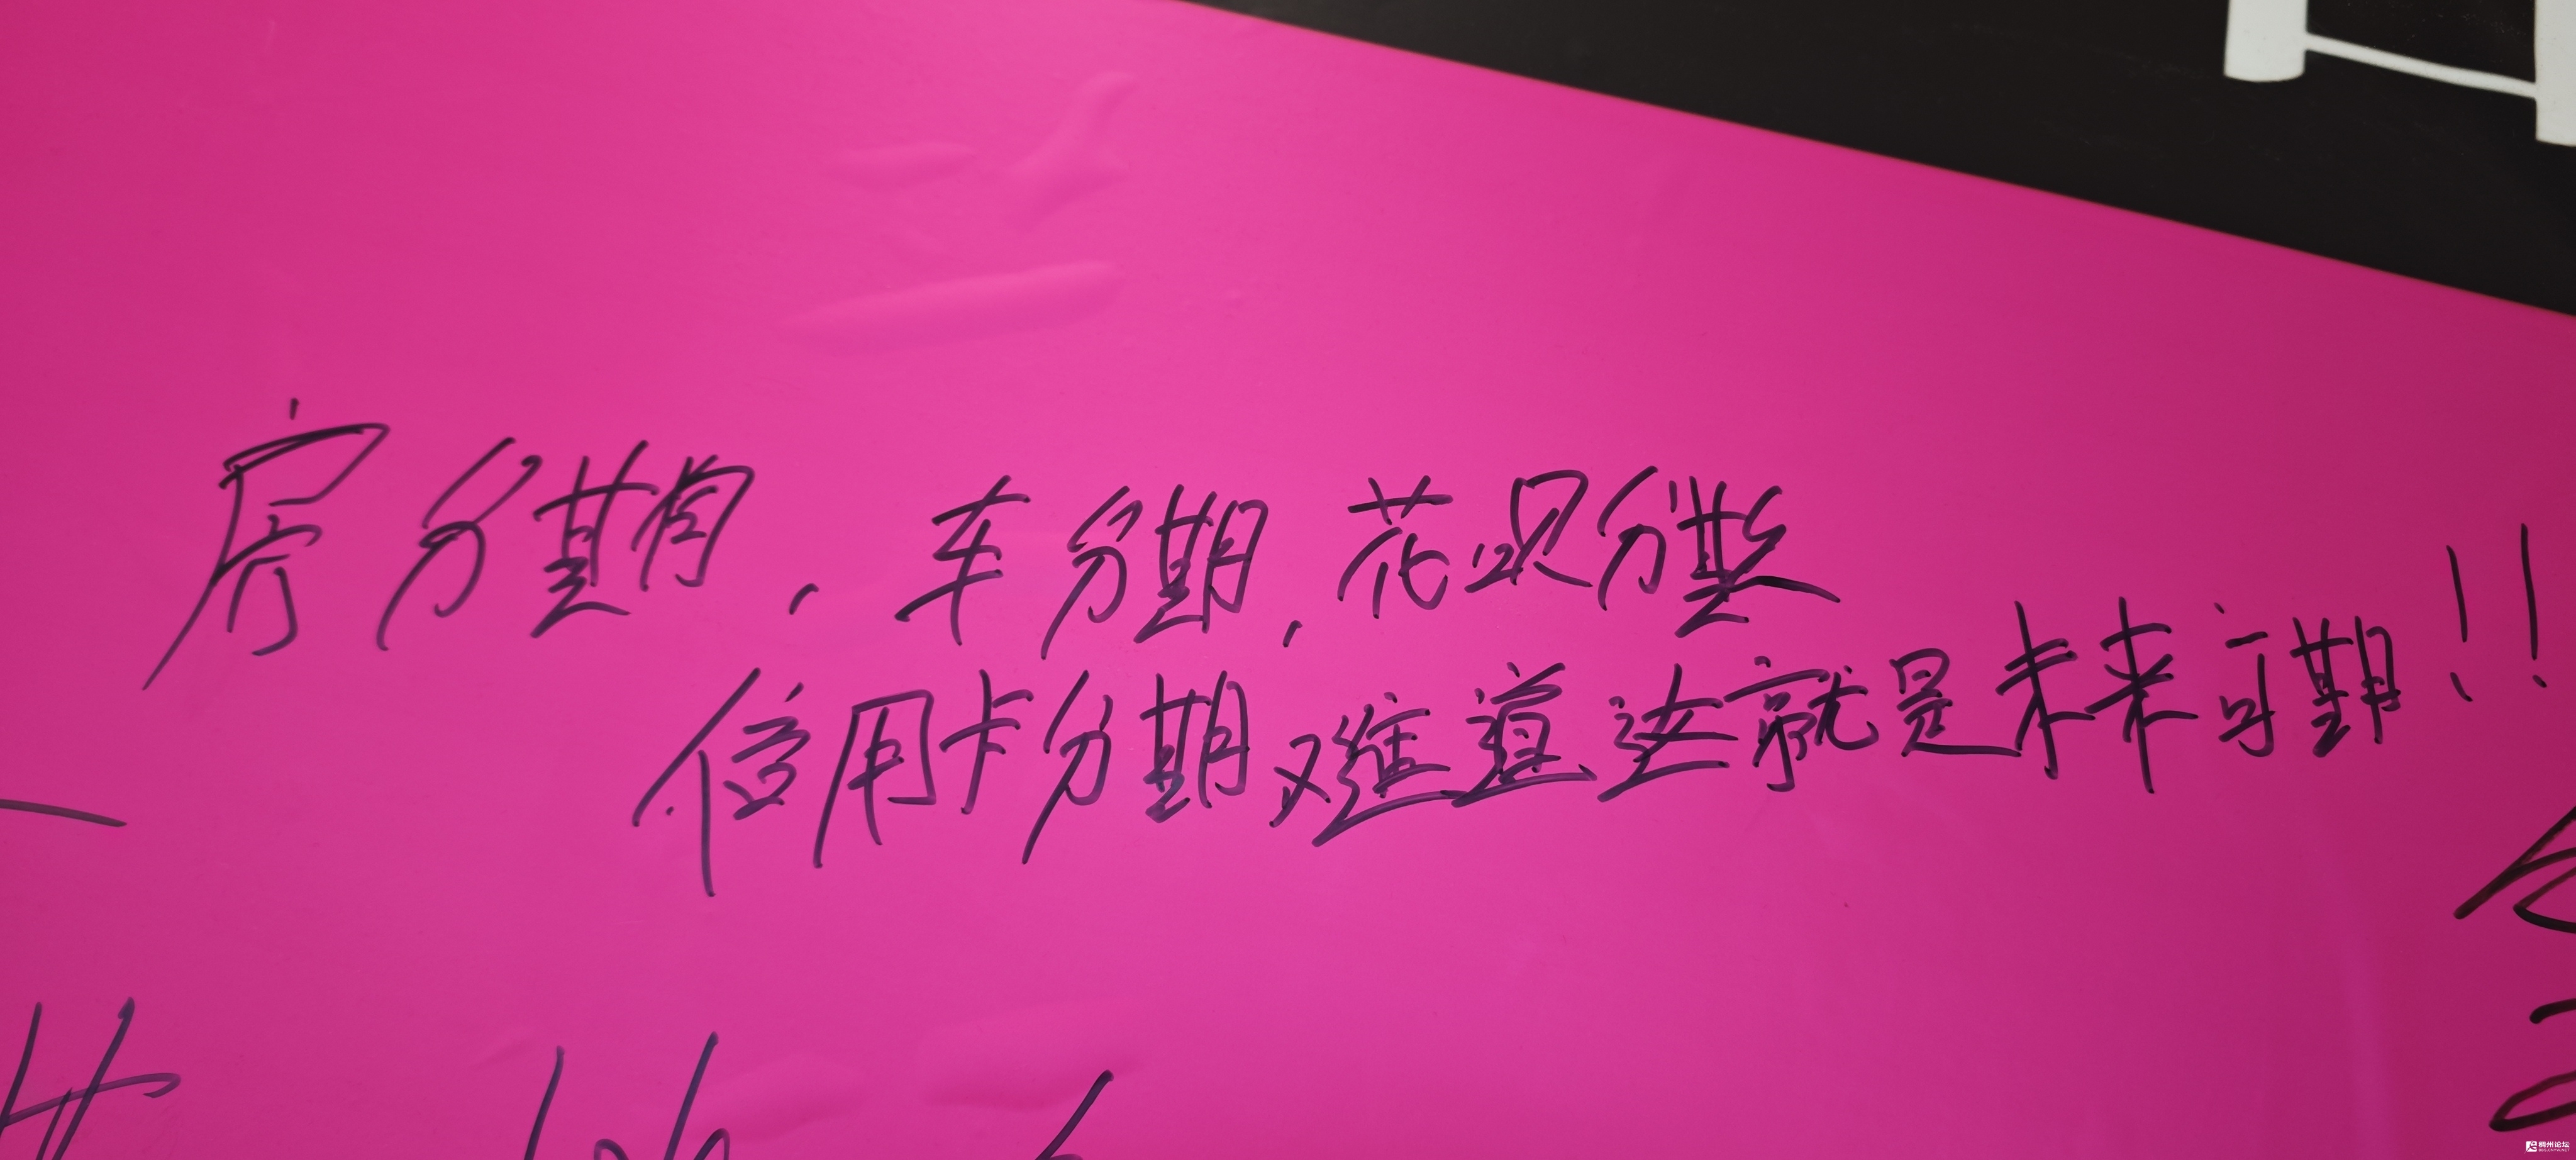 房分期，车分期，花呗分期
信用卡分期难道这就是未来可期！！
稠州论坛